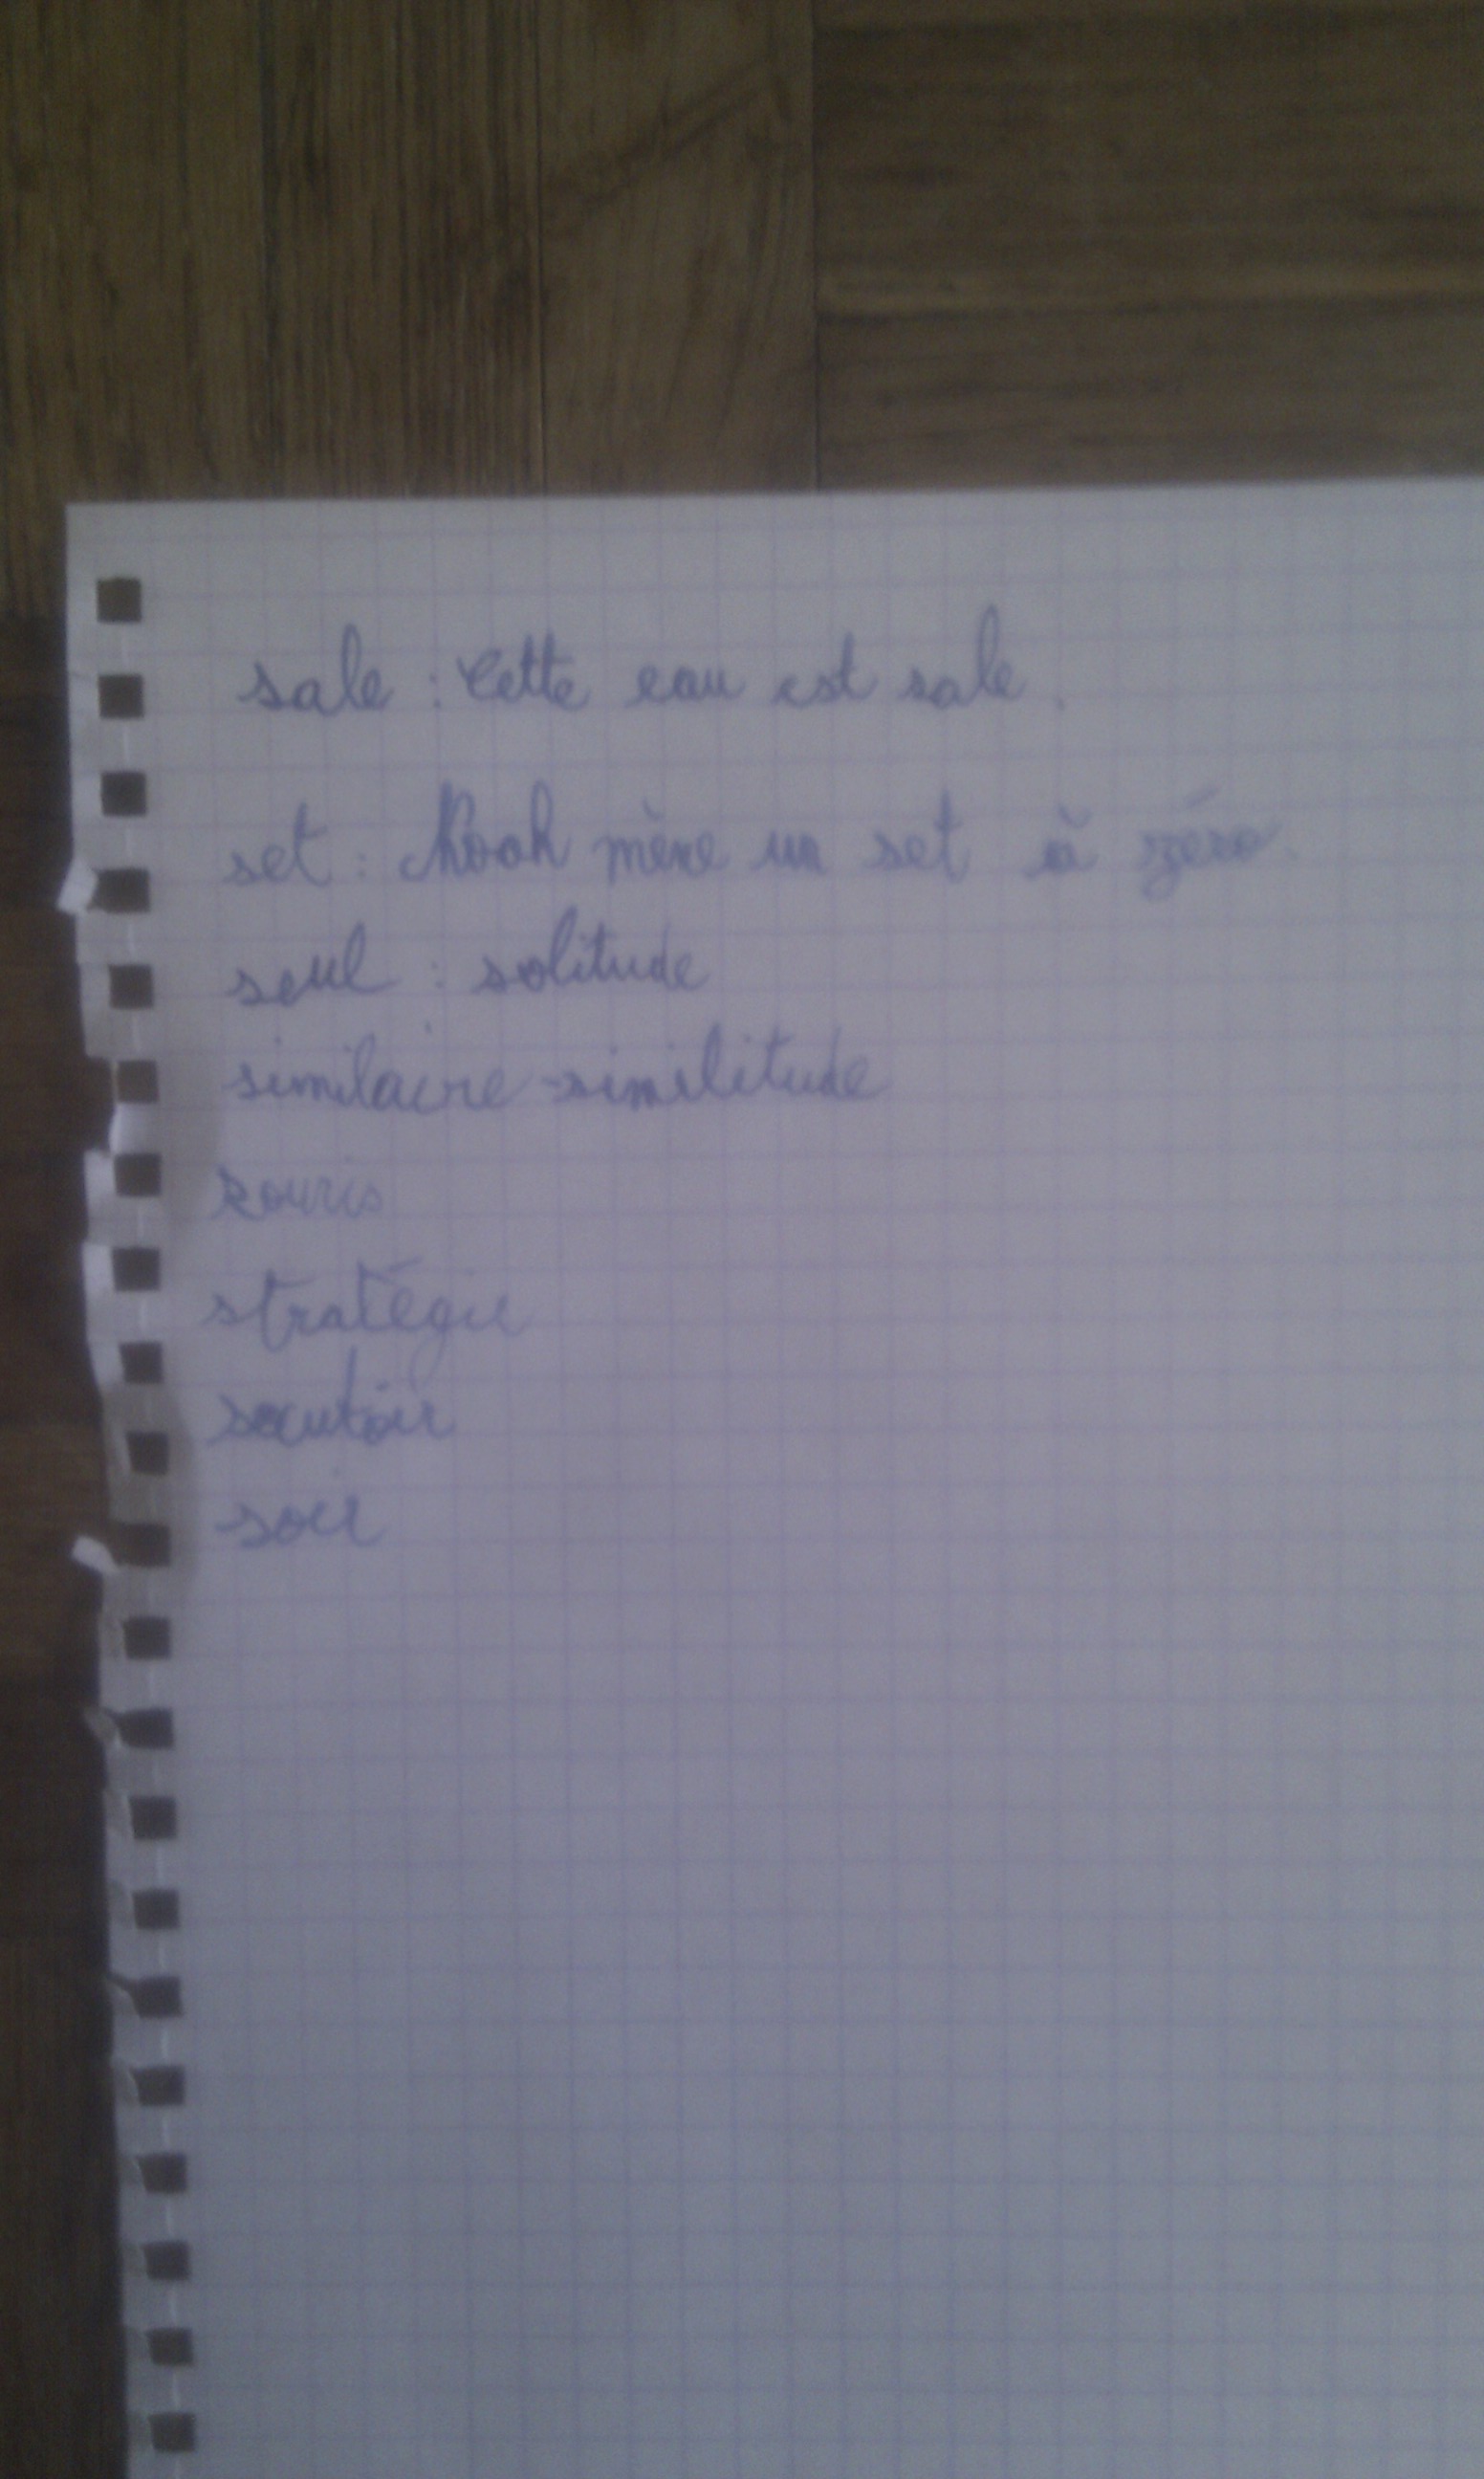 sale : Cette eau est sale.
set : Noah mène un set à zéro.
seul : solitude
similaire - similitude
souris
stratégie
soir